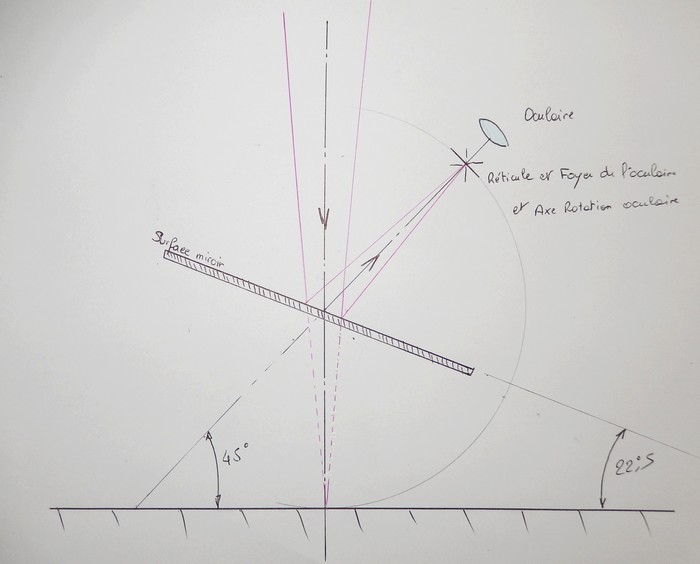 Oculaire
Réticule et Foyer de l'oculaire
et Axe Rotation oculaire
Surface miroir
45°
22°,5